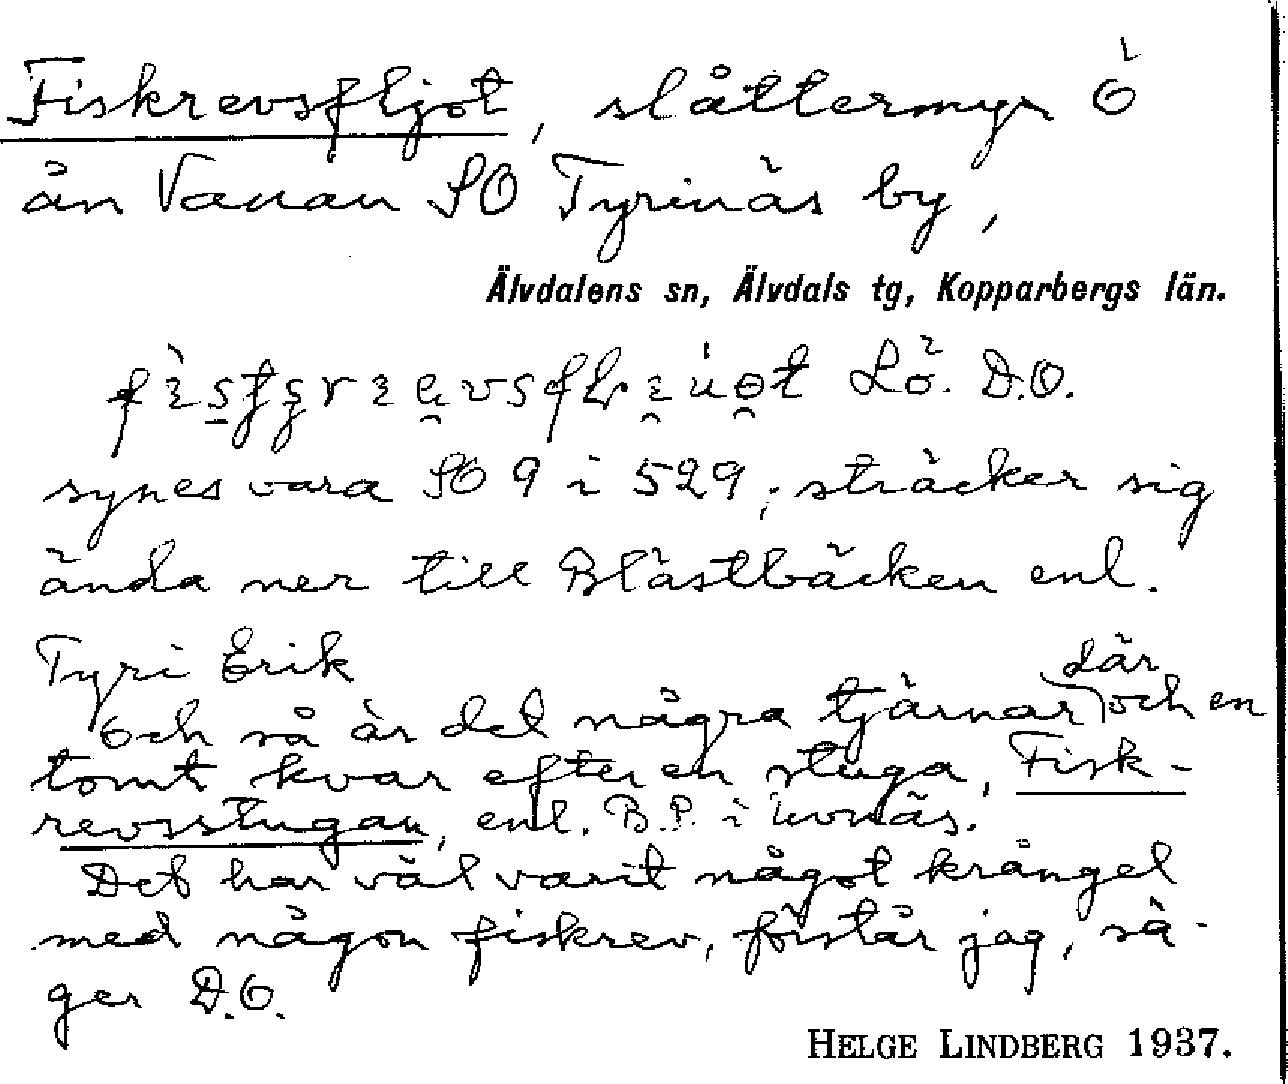 Fiskrevsfljot, slåttermyr Ö
ån Vanan SO Tyrinäs by,
Älvdalens sn, Älvdals tg, Kopparbergs län.
Lö. D.O.
synes vara SO 9 i 529; sträcker sig
ända ner till Blästbäcken enl.
Tyri Erik
och så är det några tjärnar där och en
tomt kvar efter en stuga, Fisk-
revsstugan, enl. B.P. i Evnäs.
Det har väl varit något krångel
med någon fiskrev, förstår jag, sä-
ger D.O.
HELGE LINDBERG 1937.